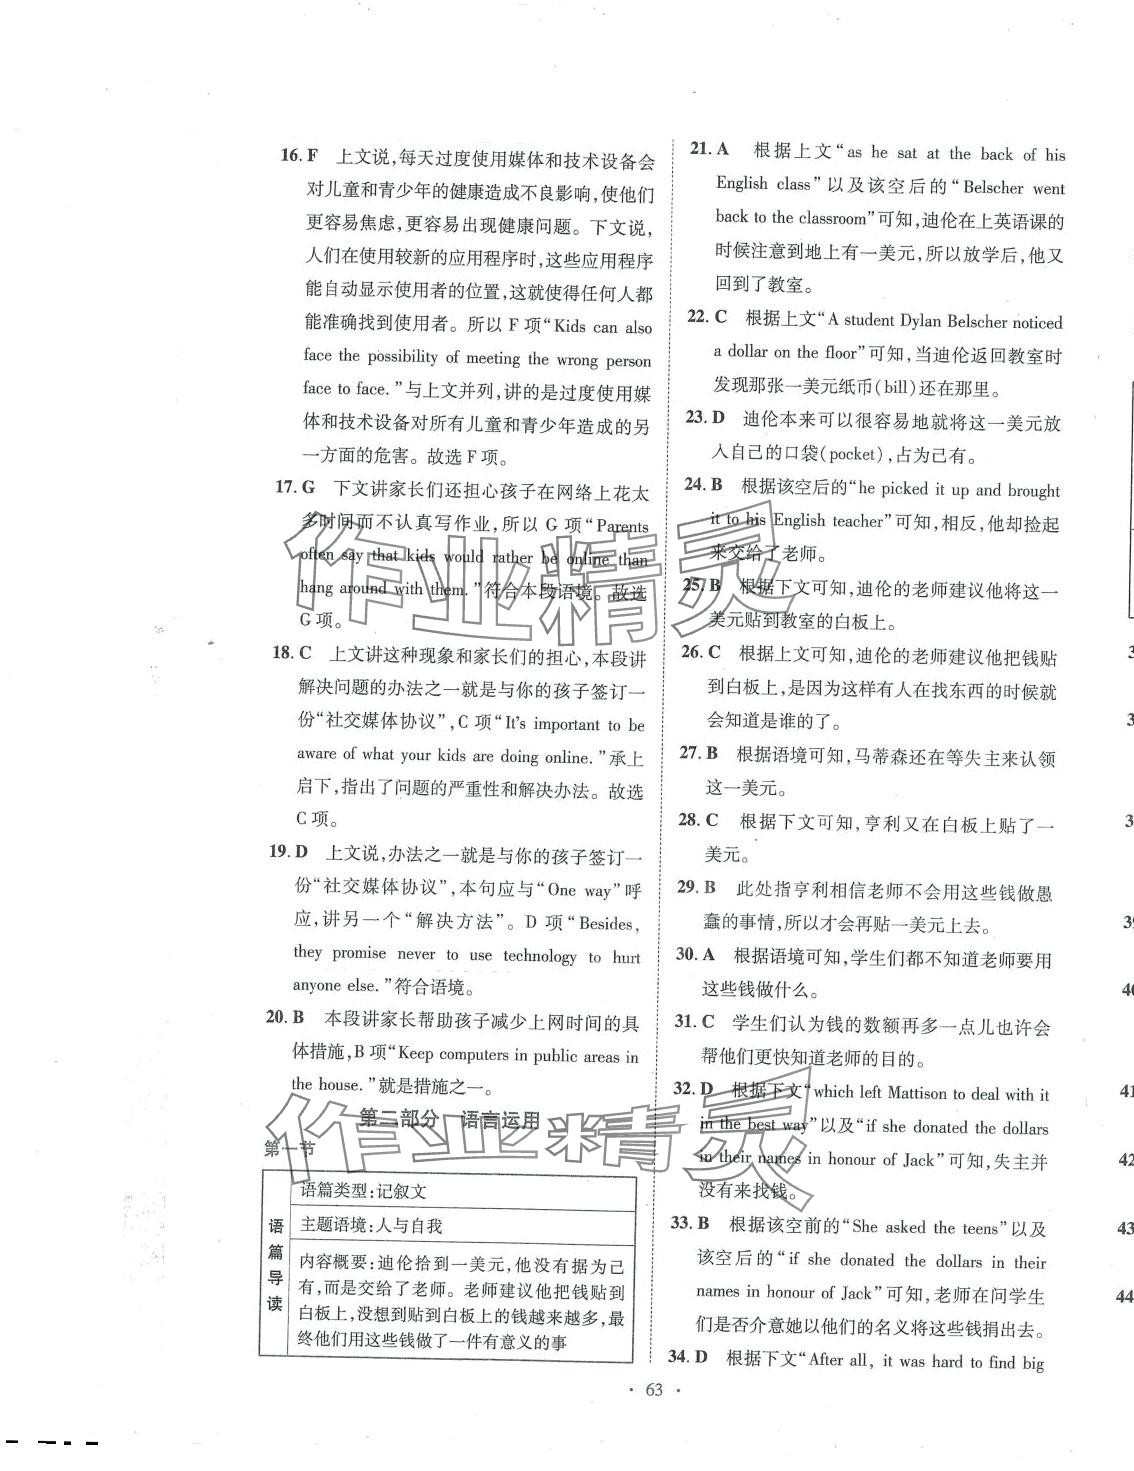 16. F　上文说,每天过度使用媒体和技术设备会
对儿童和青少年的健康造成不良影响,使他们
更容易焦虑,更容易出现健康问题。下文说,
人们在使用较新的应用程序时,这些应用程序
能自动显示使用者的位置,这就使得任何人都
能准确找到使用者。所以 F 项“Kids can also
face the possibility of meeting the wrong person
face to face.”与上文并列,讲的是过度使用媒
体和技术设备对所有儿童和青少年造成的另
一方面的危害。故选 F 项。
17. G　下文讲家长们还担心孩子在网络上花太
多时间而不认真写作业,所以 G 项“Parents
often say that kids would rather be online than
hang around with them.”符合本段语境。故选
G 项。
18. C　上文讲这种现象和家长们的担心,本段讲
解决问题的办法之一就是与你的孩子签订一
份“社交媒体协议”,C 项“It's important to be
aware of what your kids are doing online.”承上
启下,指出了问题的严重性和解决办法。故选
C 项。
19. D　上文说,办法之一就是与你的孩子签订一
份“社交媒体协议”,本句应与“One way”呼
应,讲另一个“解决方法”。D 项“Besides,
they promise never to use technology to hurt
anyone else.”符合语境。
20. B　本段讲家长帮助孩子减少上网时间的具
体措施,B 项“Keep computers in public areas in
the house.”就是措施之一。
第二部分　语言运用
第一节
语篇导读
语篇类型:记叙文
主题语境:人与自我
内容概要:迪伦拾到一美元,他没有据为己
有,而是交给了老师。老师建议他把钱贴到
白板上,没想到贴到白板上的钱越来越多,最
终他们用这些钱做了一件有意义的事
21. A　根据上文“as he sat at the back of his
English class”以及该空后的“Belscher went
back to the classroom”可知,迪伦在上英语课的
时候注意到地上有一美元,所以放学后,他又
回到了教室。
22. C　根据上文“A student Dylan Belscher noticed
a dollar on the floor”可知,当迪伦返回教室时
发现那张一美元纸币(bill)还在那里。
23. D　迪伦本来可以很容易地就将这一美元放
入自己的口袋(pocket),占为己有。
24. B　根据该空后的“he picked it up and brought
it to his English teacher”可知,相反,他却捡起
来交给了老师。
25. B　根据下文可知,迪伦的老师建议他将这一
美元贴到教室的白板上。
26. C　根据上文可知,迪伦的老师建议他把钱贴
到白板上,是因为这样有人在找东西的时候就
会知道是谁的了。
27. B　根据语境可知,马蒂森还在等失主来认领
这一美元。
28. C　根据下文可知,亨利又在白板上贴了一
美元。
29. B　此处指亨利相信老师不会用这些钱做愚
蠢的事情,所以才会再贴一美元上去。
30. A　根据语境可知,学生们都不知道老师要用
这些钱做什么。
31. C　学生们认为钱的数额再多一点儿也许会
帮他们更快知道老师的目的。
32. D　根据下文“which left Mattison to deal with it
in the best way”以及“if she donated the dollars
in their names in honour of Jack”可知,失主并
没有来找钱。
33. B　根据该空前的“She asked the teens”以及
该空后的“if she donated the dollars in their
names in honour of Jack”可知,老师在问学生
们是否介意她以他们的名义将这些钱捐出去。
34. D　根据下文“After all, it was hard to find big
· 63 ·
作业精灵
作业精灵